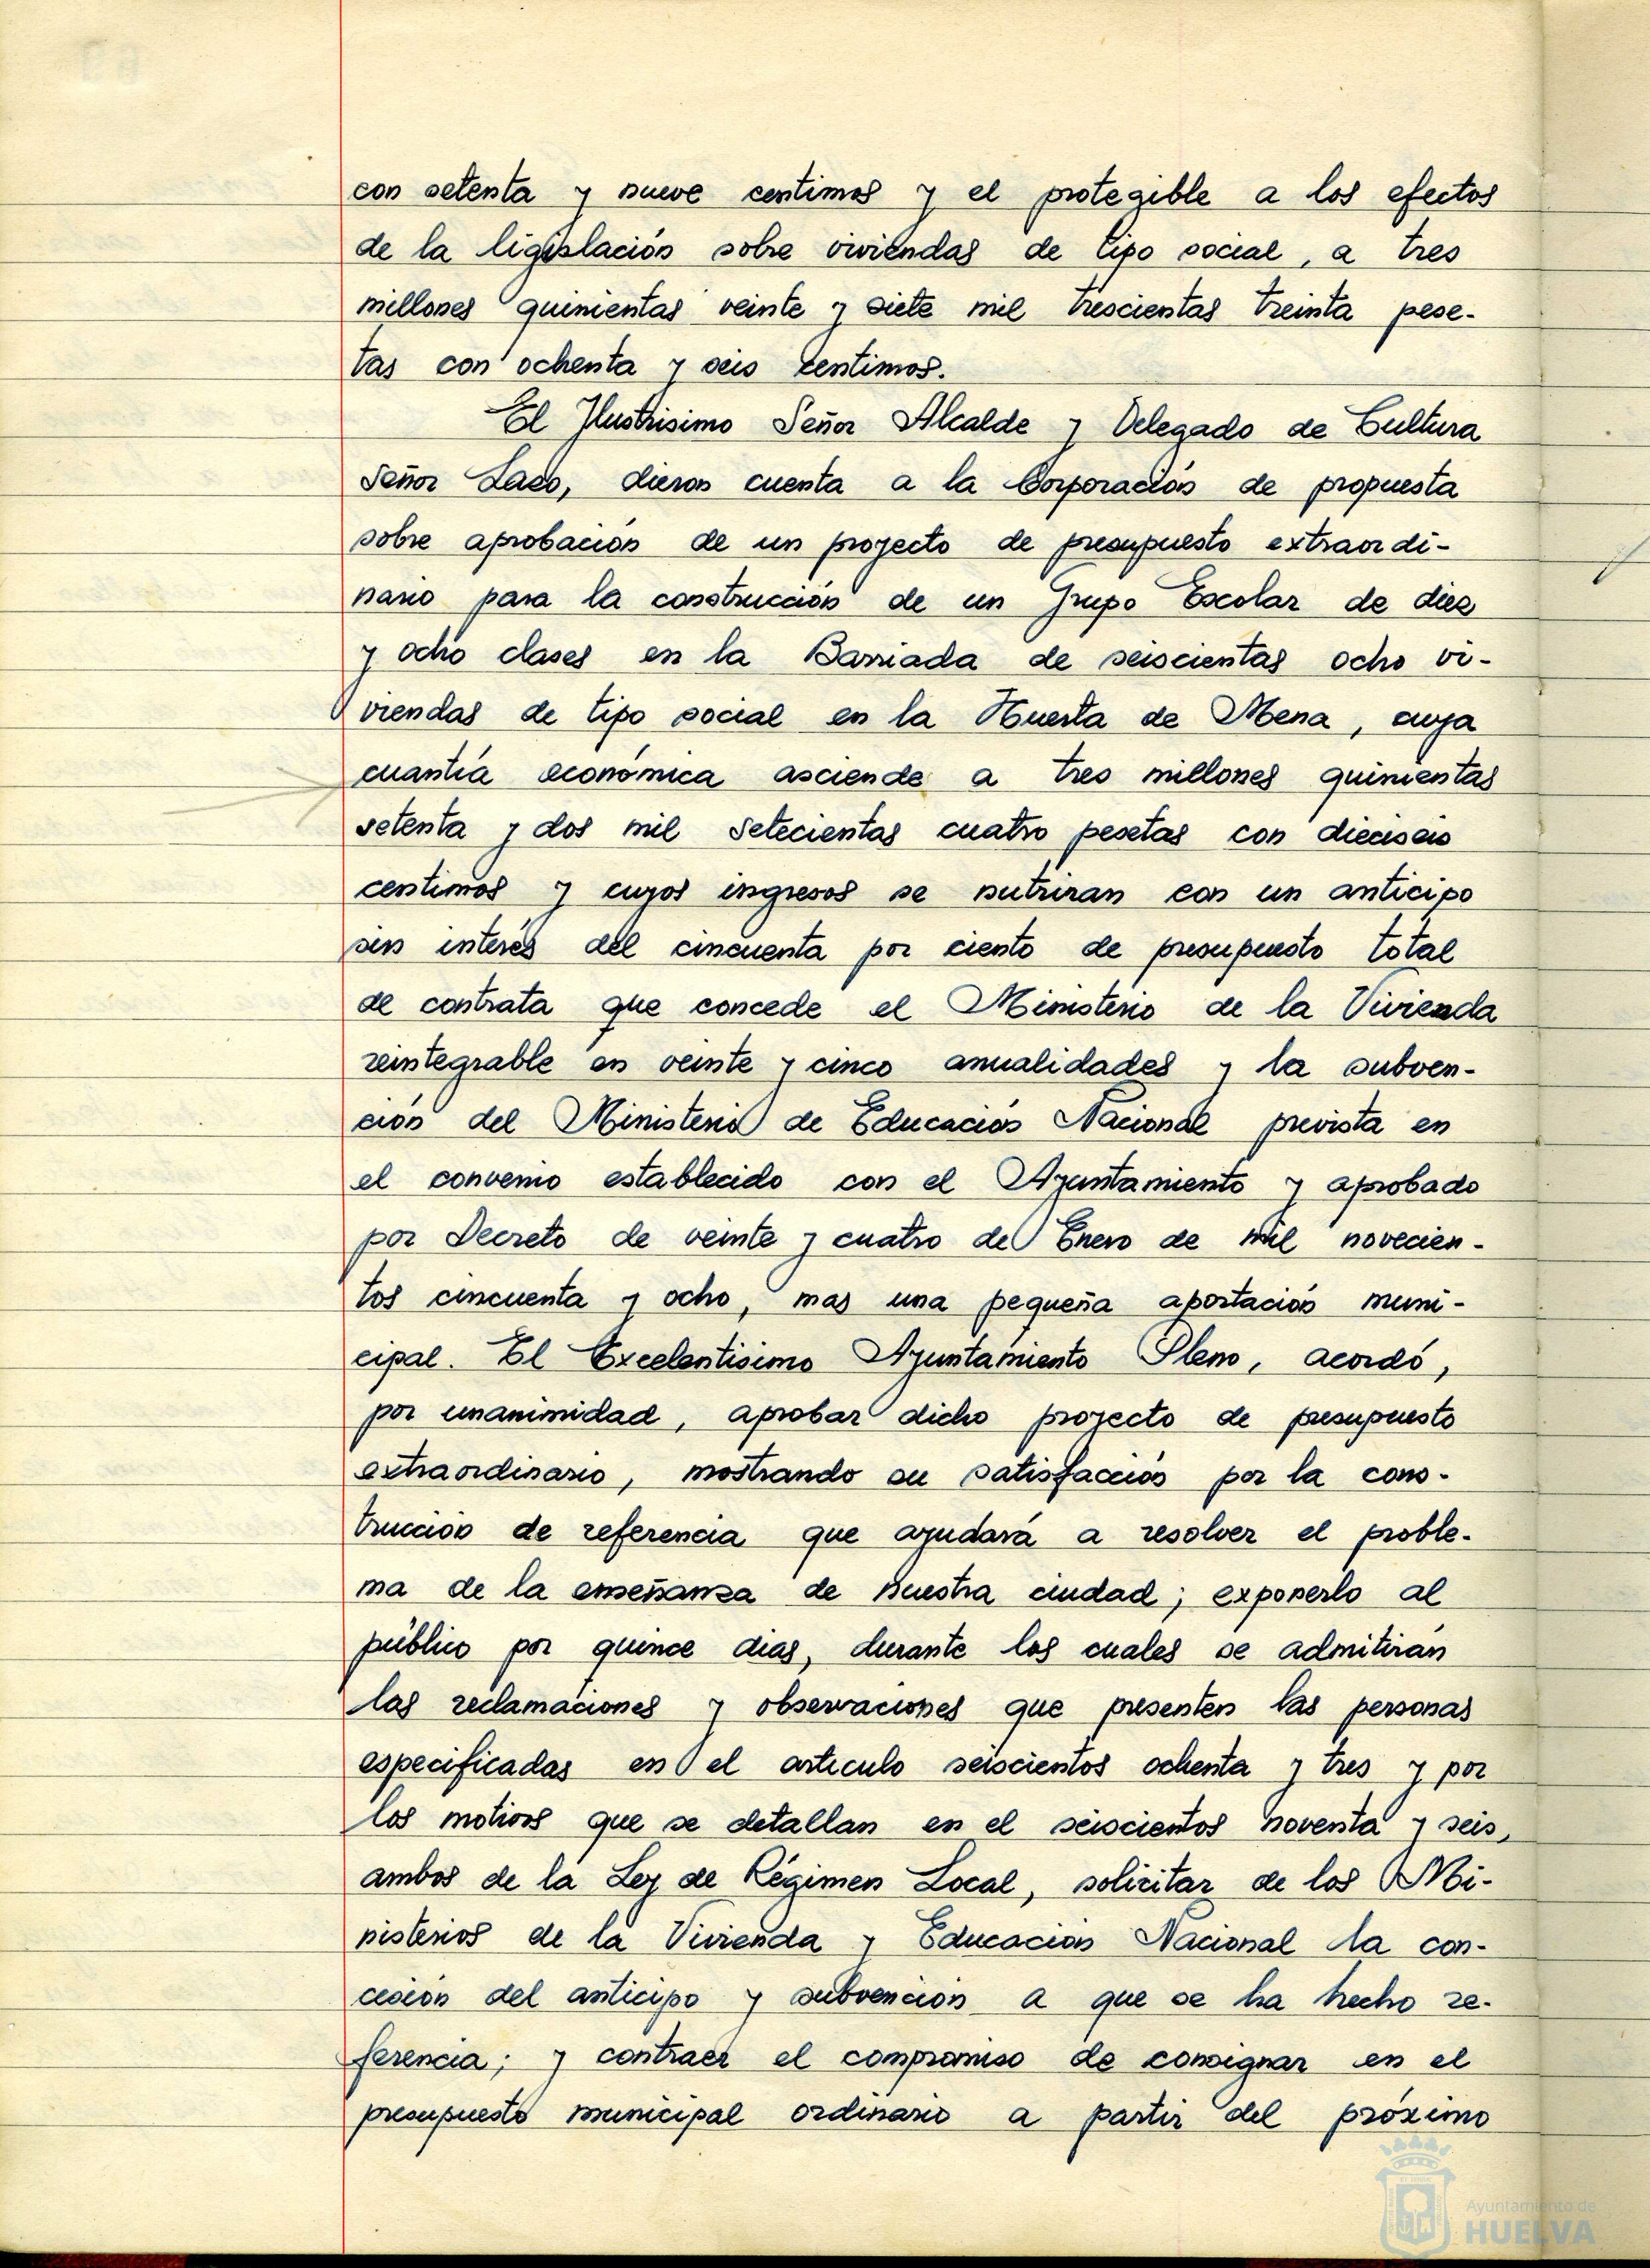 con setenta y nueve centimos y el protegible a los efectos
de la ligislación sobre viviendas de tipo social, a tres
millones quinientas veinte y siete mil trescientas treinta pese-
tas con ochenta y seis centimos.
El Ilustrisimo Señor Alcalde y Delegado de Cultura
Señor Lazo, dieron cuenta a la Corporación de propuesta
sobre aprobación de un proyecto de presupuesto extraordi-
nario para la construcción de un Grupo Escolar de diez
y ocho clases en la Barriada de seiscientas ocho vi-
viendas de tipo social en la Huerta de Mena, cuya
cuantía económica asciende a tres millones quinientas
setenta y dos mil setecientas cuatro pesetas con dieciseis
centimos y cuyos ingresos se nutriran con un anticipo
sin interés del cincuenta por ciento de presupuesto total
de contrata que concede el Ministerio de la Vivienda
reintegrable en veinte y cinco anualidades y la subven-
ción del Ministerio de Educación Nacional prevista en
el convenio establecido con el Ayuntamiento y aprobado
por Decreto de veinte y cuatro de Enero de mil novecien-
tos cincuenta y ocho, mas una pequeña aportación muni-
cipal. El Excelentisimo Ayuntamiento Pleno, acordó,
por unanimidad, aprobar dicho proyecto de presupuesto
extraordinario, mostrando su satisfacción por la cons-
trucción de referencia que ayudará a resolver el proble-
ma de la enseñanza de nuestra ciudad; exponerlo al
público por quince dias, durante los cuales se admitirán
las reclamaciones y observaciones que presenten las personas
especificadas en el articulo seiscientos ochenta y tres y por
los motivos que se detallan en el seiscientos noventa y seis,
ambos de la Ley de Régimen Local, solicitar de los Mi-
nisterios de la Vivienda y Educación Nacional la con-
cesión del anticipo y subvención a que se ha hecho re-
ferencia; y contraer el compromiso de consignar en el
presupuesto municipal ordinario a partir del próximo
Ayuntamiento de
HUELVA